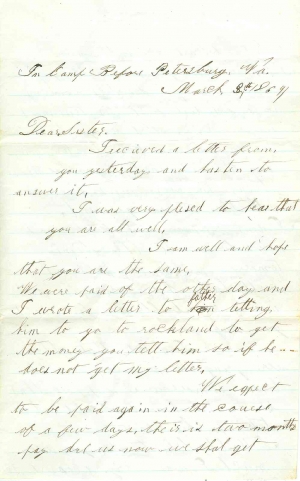 In Camp Before Petersburg, Va.
March
Dear Sister.
I recieved a letter from,
you yesterday and hasten to
answer it,
I was very plesed to hear that
you are all well,
I am well and hope
that you are the same,
We were paid of the other day and
I wrote a letter to father telling,
him to go to rockland to get
the money you tell him so if he
does not get my letter,
We expect
to be paid again in the course
of a few days, their is two months
pay due us now we shal get